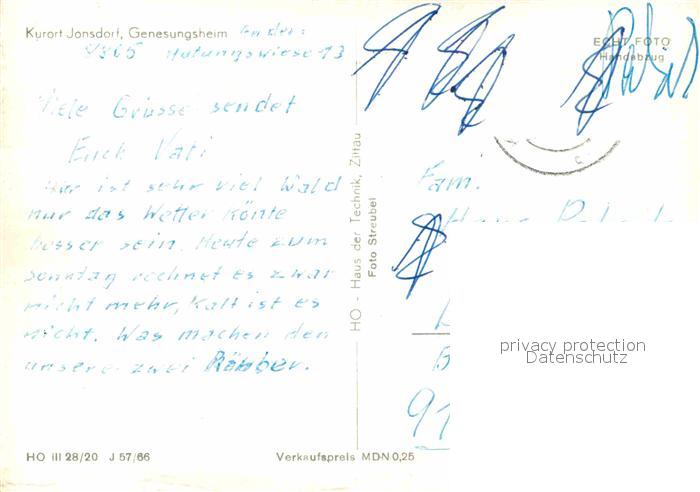 Kurort Jonsdorf, Genesungsheim
Hutungswiese 13
ECHT FOTO
Handabzug
Viele Grüsse sendet
Euch Vati
Hier ist sehr viel Wald
nur das Wetter könte
besser sein. Heute zum
Sonntag rechnet es zwar
nicht mehr, Kalt ist es
nicht. Was machen den
unsere zwei Räuber.
HO - Haus der Technik, Zittau
Foto Streubel
Fam.
91
privacy protection
Datenschutz
HO III 28/20 J 57/66
Verkaufspreis MDN 0,25